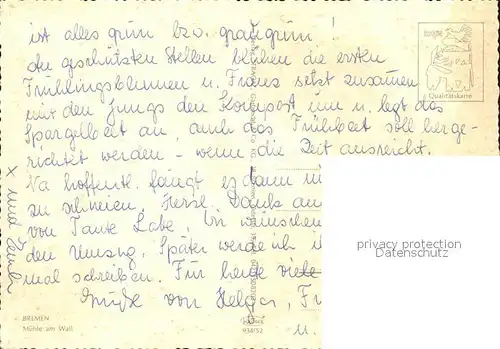 ist alles grün bzw. graugrün!
An geschützten Stellen blühen die ersten
Frühlingsblumen u. Franz setzt zusammen
mit den Jungs den Kompost um u. legt das
Spargelbeet an, auch das Frühbeet soll herge-
richtet werden – wenn die Zeit ausreicht.
Na hoffentl. fängt es dann
zu schneien. Herzl. Dank
von Tante Labe. Wir wünschen
den Umzug. Später werde ich
mal schreiben. Für heute viele
Grüße von Helga,
u.
x und
privacy protection
Datenschutz
Qualitätskarte
BREMEN
Mühle am Wall
938/52